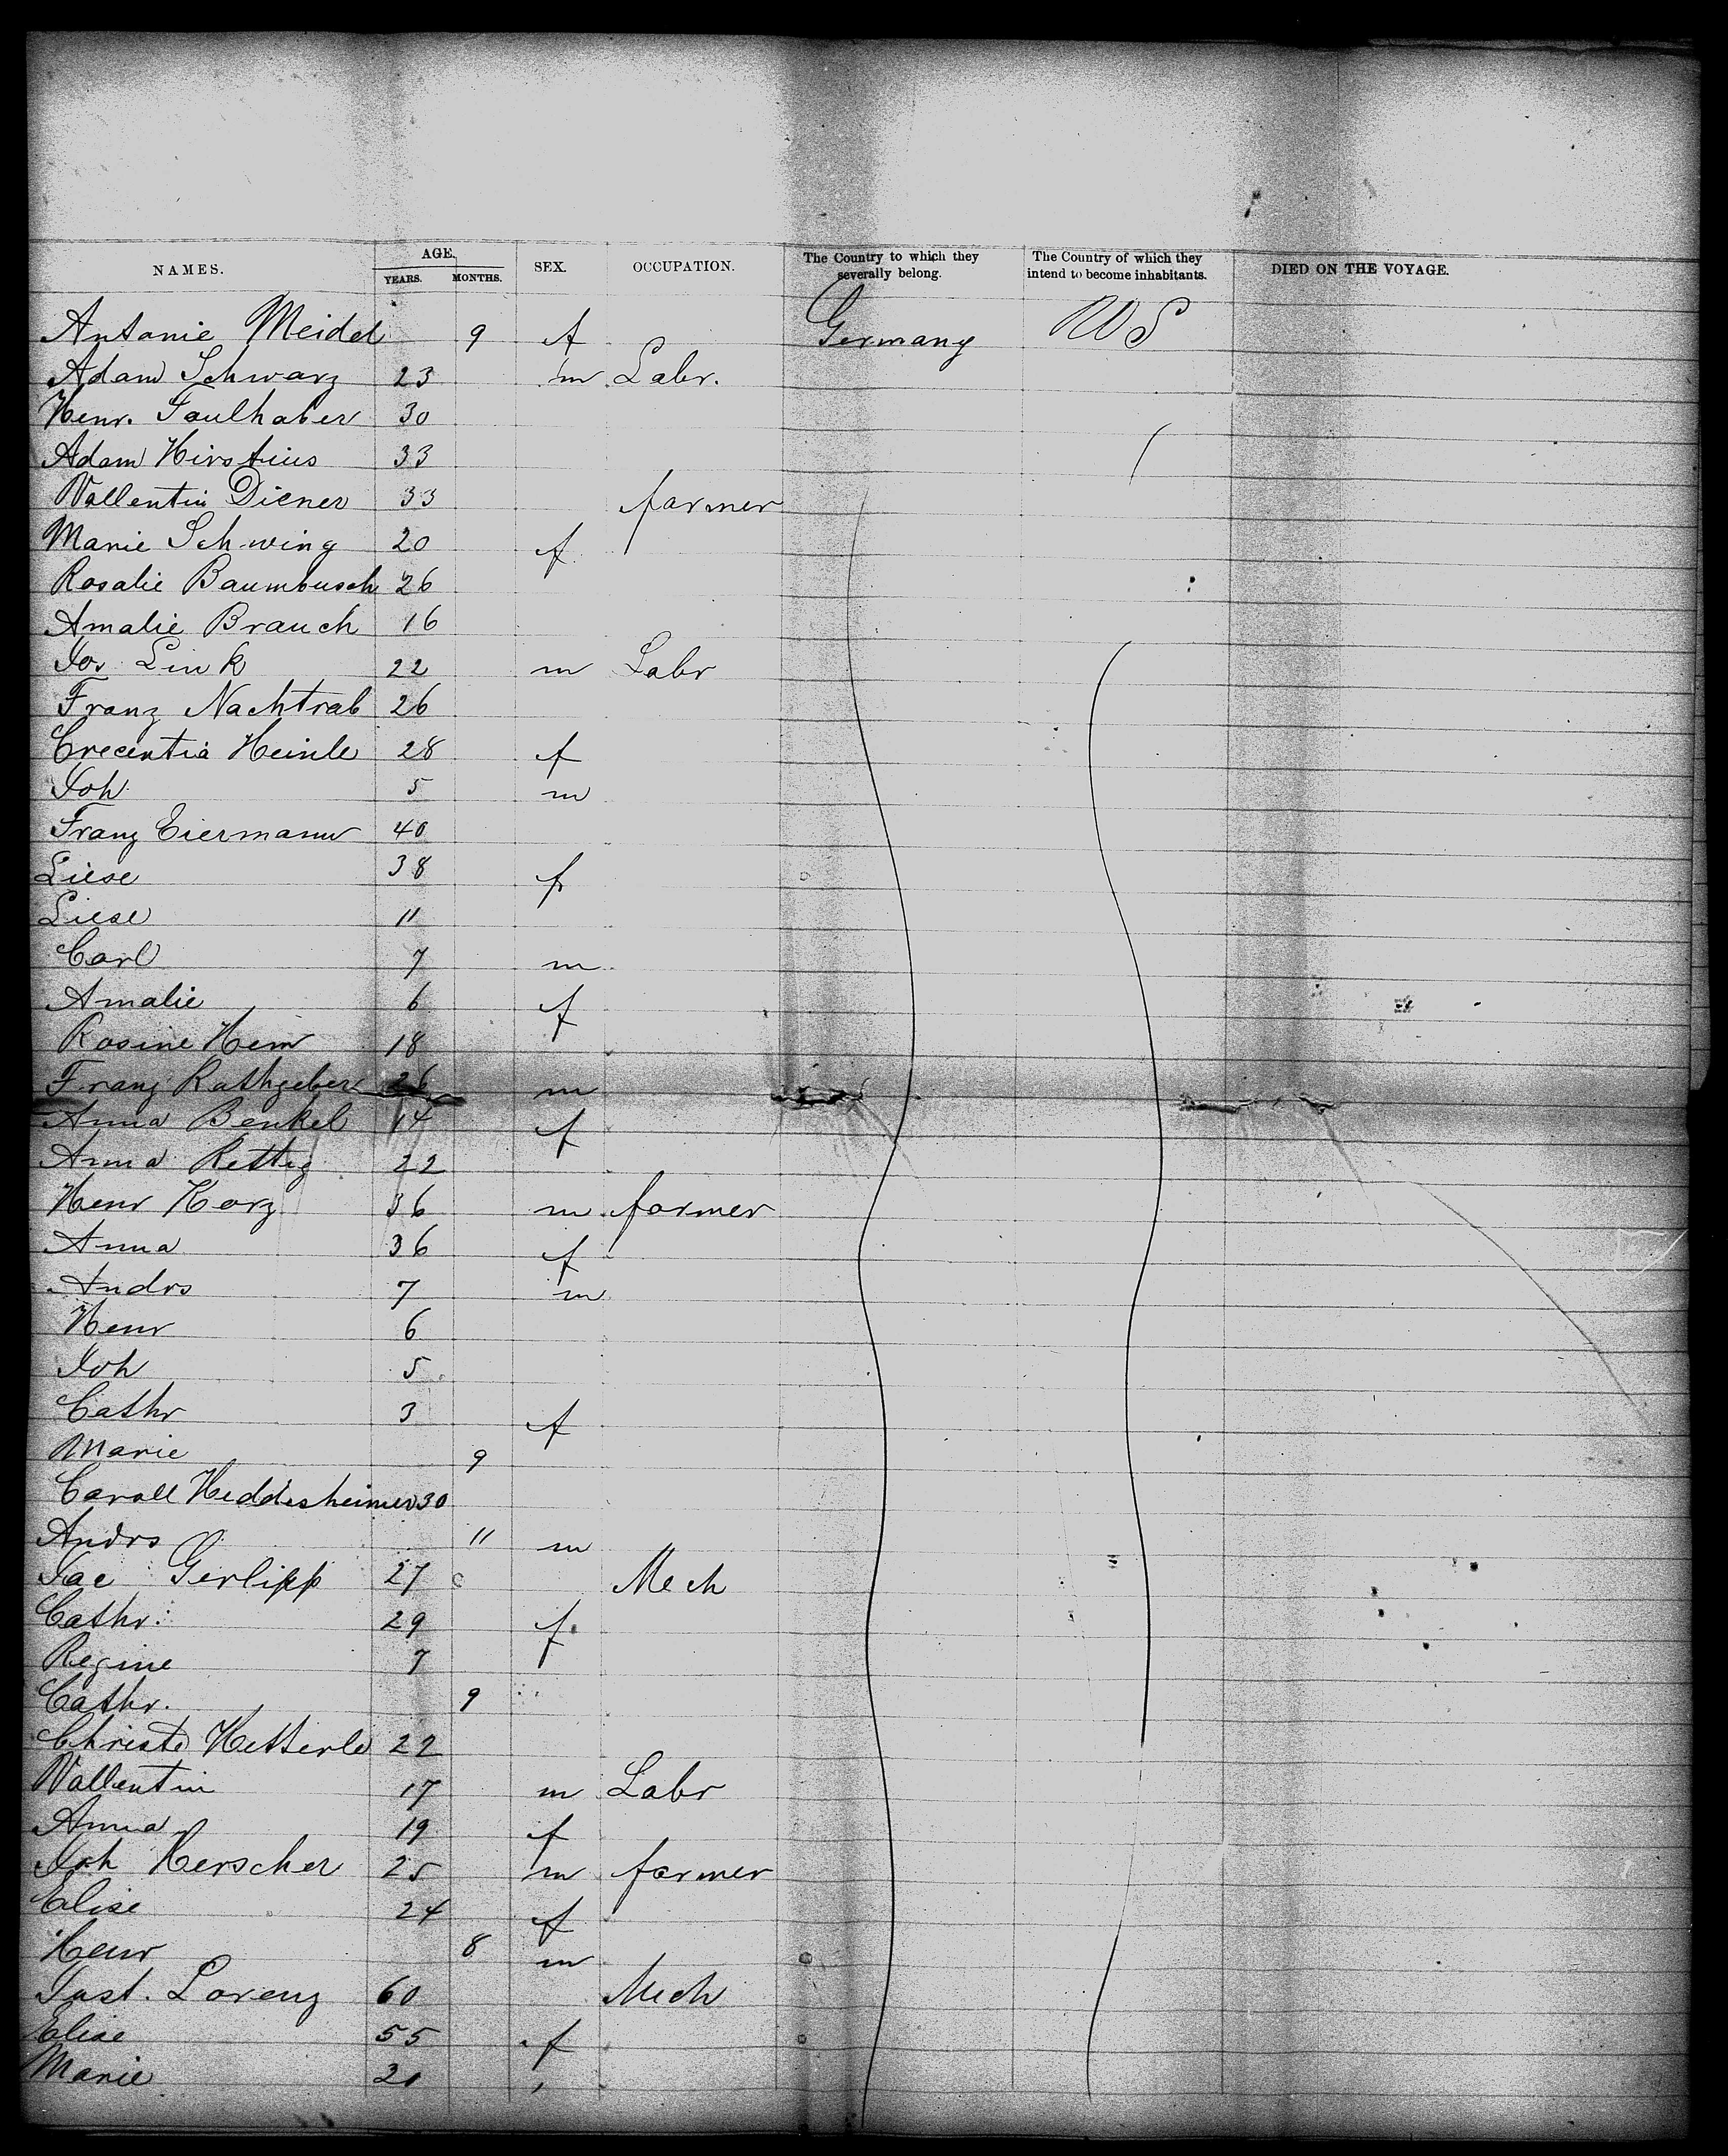 NAMES. AGE. YEARS. MONTHS. SEX. OCCUPATION. The Country to which they severally belong. The Country of which they intend to become inhabitants. DIED ON THE VOYAGE.
Antonie Meidel 9 f Germany US
Adam Schwarz 23 m Labr.
Henr. Faulhaber 30
Adam Hirstius 33
Vallentin Diener 33 farmer
Marie Schwing 20 f
Rosalie Baumbusch 26
Amalie Brauch 16
Jos. Link 22 m Labr
Franz Nachtrab 26
Crecentia Heinle 28 f
Joh. 5 m
Franz Eiermann 40
Liese 38 f
Liese 11
Carl 7 m
Amalie 6 f
Rosine Hem 18
Franz Rathgeber 26 m
Anna Benkel 14 f
Anna Rettig 22
Henr Horz 36 m farmer
Anna 36 f
Andrs 7 m
Henr 6
Joh 5
Cathr 3 f
Marie 9
Caroll Heddesheimer 30
Andrs 11 m
Jac Gerlipp 27 Mech
Cathr. 29 f
Regine 7
Cathr. 9
Christe Hetterle 22
Vallentin 17 m Labr
Anna 19 f
Joh Herscher 25 m farmer
Elise 24 f
Henr 8 m
Just. Lorenz 60 Mech
Elise 55 f
Marie 20 ,